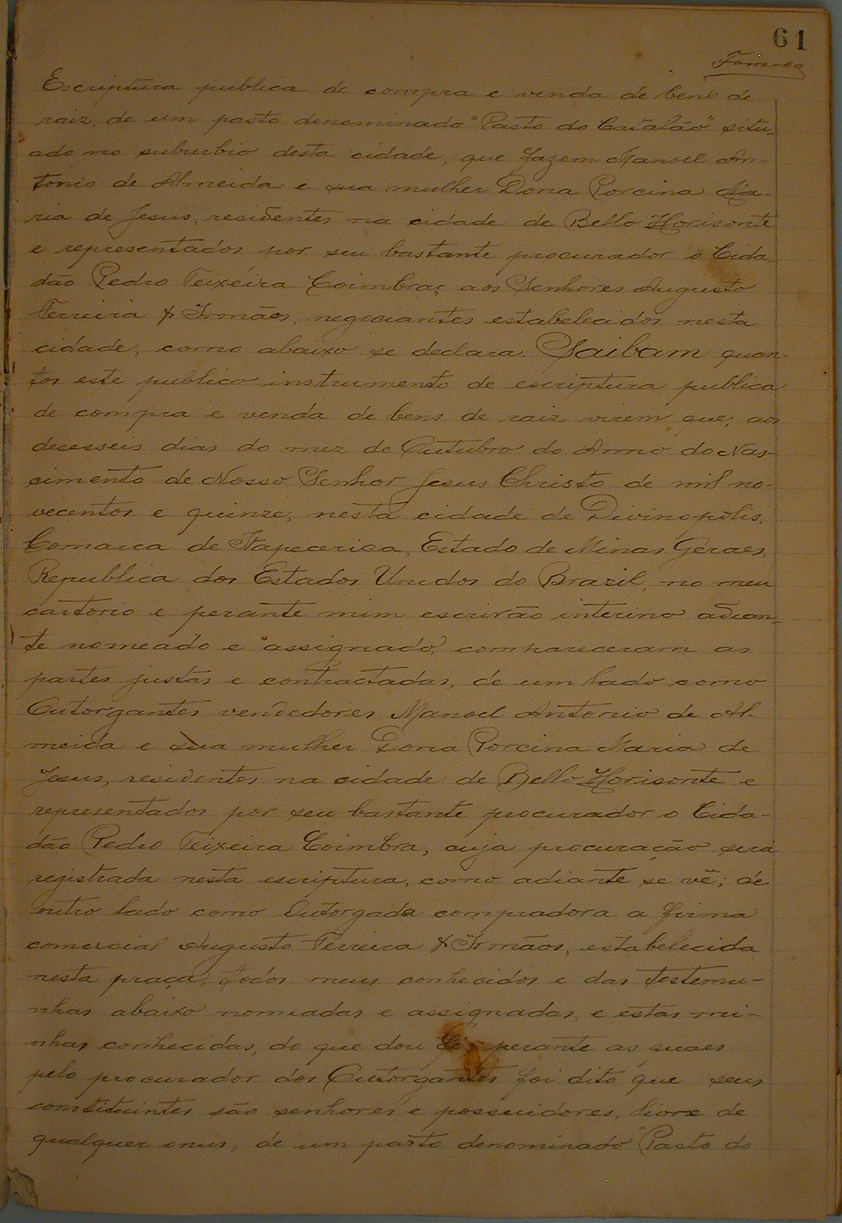 61
Fonseca
Escriptura publica de compra e venda de bens de
raiz, de um pasto denominado "Pasto do Catalão" situ-
ado no suburbio desta cidade, que fazem Manoel An-
tonio de Almeida e sua mulher Dona Porcina Ma-
ria de Jesus, residentes na cidade de Bello Horisonte
e representados por seu bastante procurador o Cida-
dão Pedro Teixeira Coimbra; aos Senhores Augusto
Ferreira & Irmãos, negociantes estabelecidos nesta
cidade, como abaixo se declara: Saibam quan-
tos este publico instrumento de escriptura publica
de compra e venda de bens de raiz virem que, aos
deseseis dias do mez de Outubro do Anno do Nas-
cimento de Nosso Senhor Jesus Christo de mil no-
vecentos e quinze, nesta cidade de Divinopolis,
Comarca de Itapecerica, Estado de Minas Geraes,
Republica dos Estados Unidos do Brazil, no meu
cartorio e perante mim escrivão interino adian-
te nomeado e assignado, compareceram as
partes justas e contractadas, de um lado como
Outorgantes vendedores Manoel Antonio de Al-
meida e sua mulher Dona Porcina Maria de
Jesus, residentes na cidade de Bello Horisonte e
representados por seu bastante procurador o Cida-
dão Pedro Teixeira Coimbra, cuja procuração será
registrada nesta escriptura, como adiante se vê; de
outro lado como Outorgada compradora a firma
comercial Augusto Ferreira & Irmãos, estabelecida
nesta praça, todos meus conhecidos e das testemu-
nhas abaixo nomeadas e assignadas, e estas mi-
nhas conhecidas, do que dou fé; perante as quaes
pelo procurador dos Outorgantes foi dito que seus
constituintes são senhores e possuidores, livre de
qualquer onus, de um pasto denominado "Pasto do